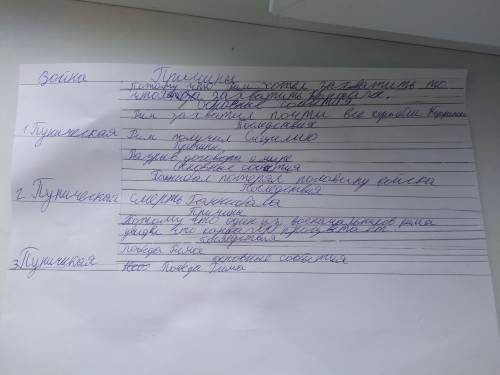 Война Причины
Потому что Рим хотел захватить то
что захватить
Основные события
Рим захватил почти все корабли
Последствия
1 Пуническая Рим получил Сицилию
Причины
Разрыв договора о мире
Основные события
Ганнибал потерял половину войска
Последствия
2 Пуническая смерть Ганнибала
Причины
Потому что один из военачальников рима
увидел что
Последствия
победа Рима
основные события
3 Пуническая Победа Рима